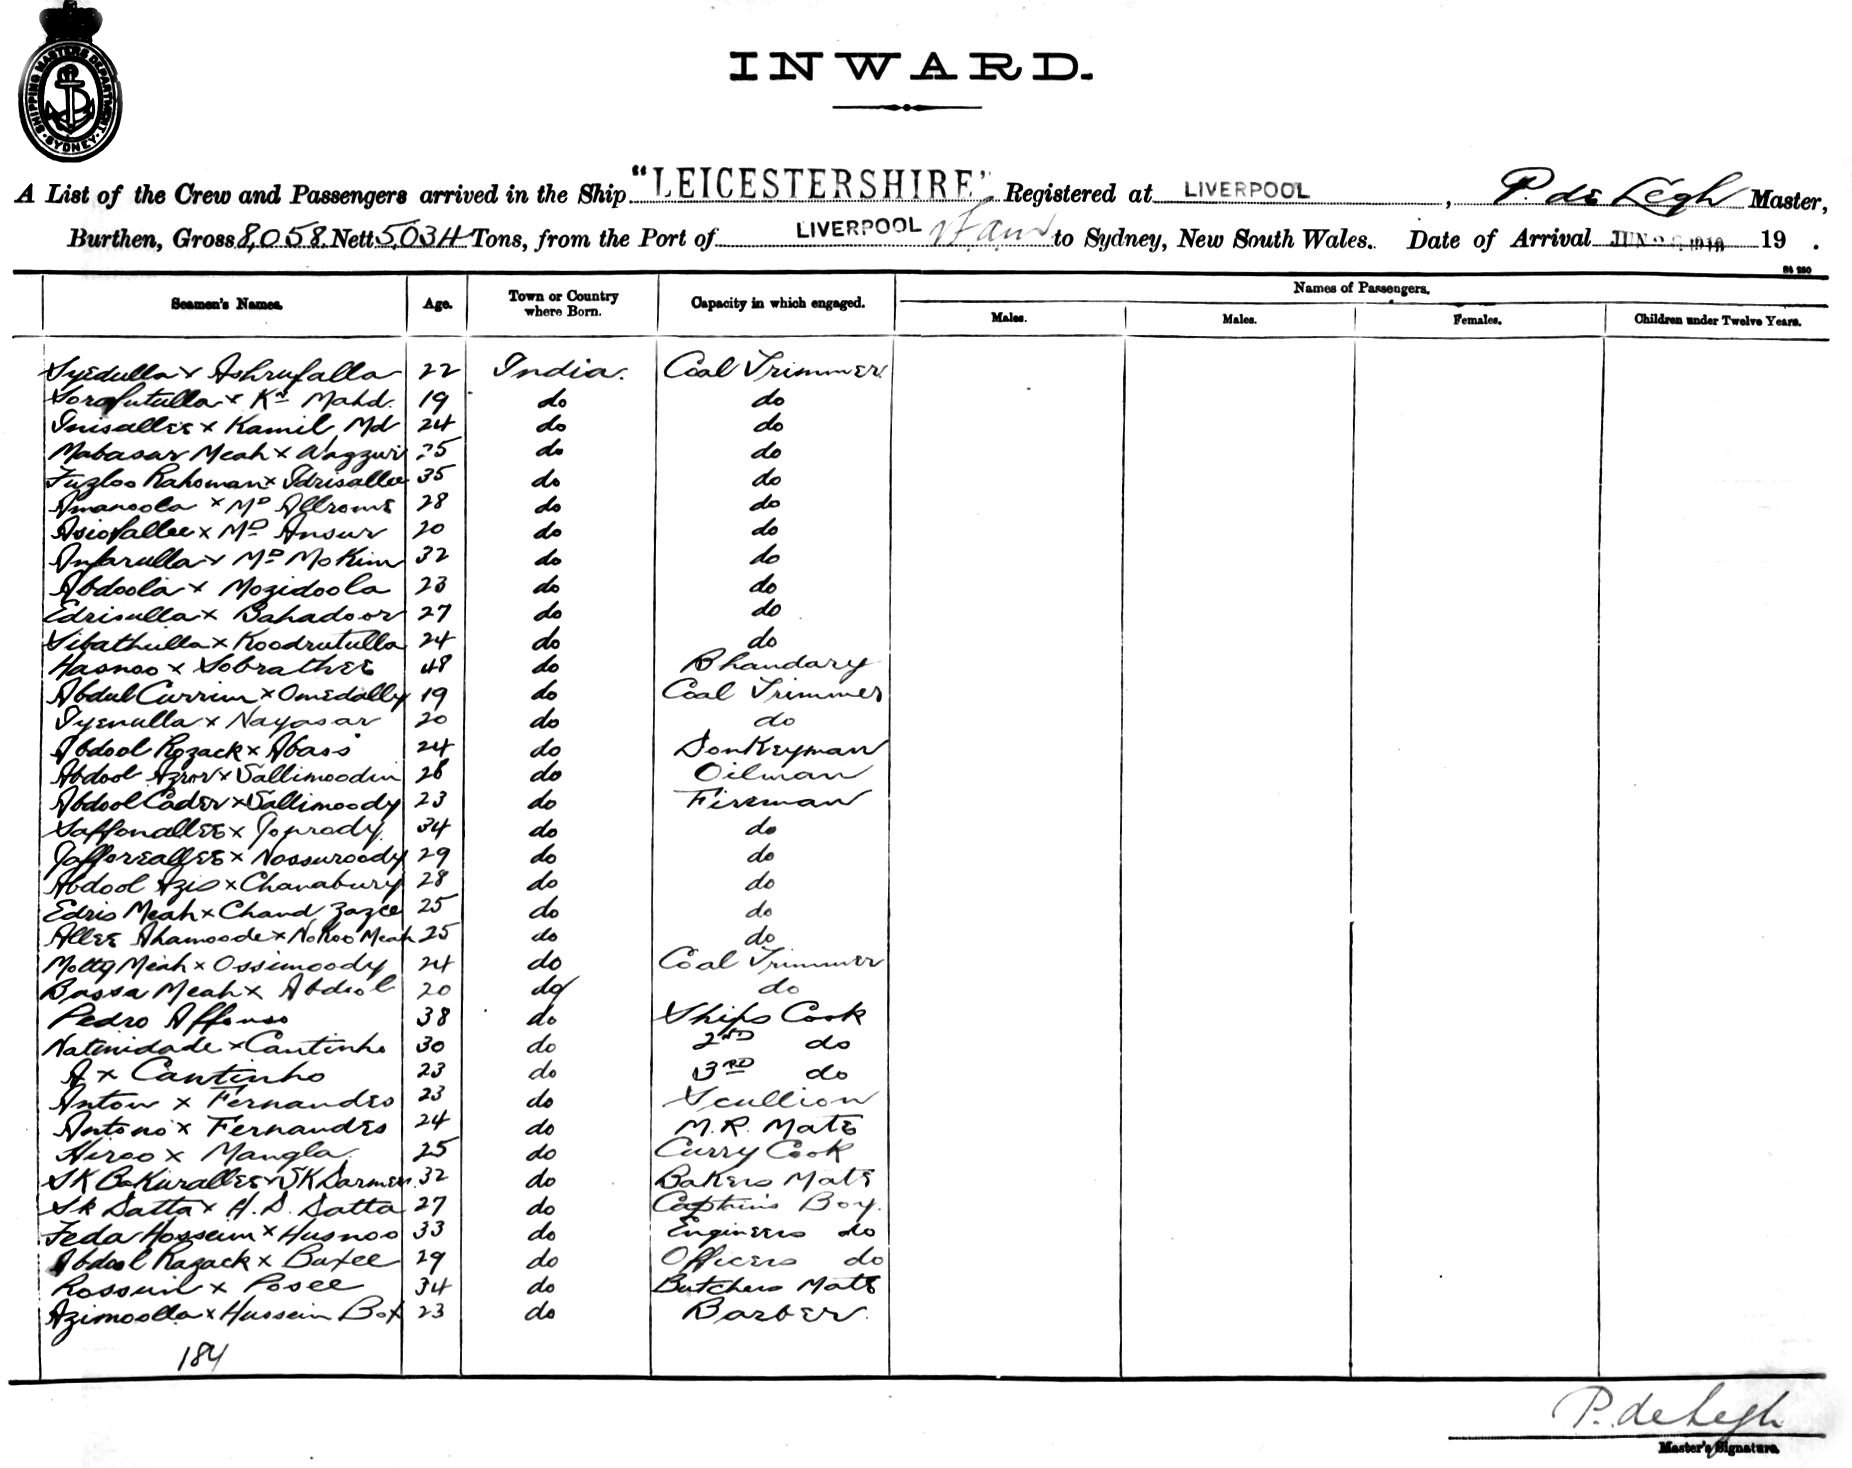 SHIPPING MASTERS DEPARTMENT
SYDNEY
INWARD.
A List of the Crew and Passengers arrived in the Ship "LEICESTERSHIRE" Registered at LIVERPOOL, P. de Legh Master,
Burthen, Gross 8,058 Nett 5034 Tons, from the Port of LIVERPOOL to Sydney, New South Wales. Date of Arrival JUN 19 .
Seamen's Names. Age. Town or Country where Born. Capacity in which engaged. Names of Passengers.
Males. Males. Females. Children under Twelve Years.
Syedulla x Ashrufalla 22 India. Coal Trimmer
x Kn Mahd. 19 do do
Inisallee x Kamil Md 24 do do
Mabasar Meah x do do
Fuzloo Rahoman x Idrisallee 35 do do
Amanoola x MD Allrome 28 do do
x MD Ansur 20 do do
x MD Mokim 32 do do
Abdoola x Mozidoola 23 do do
Edrisulla x Bahadoor 27 do do
Sibathulla x Koodrutulla 24 do do
Hasnoo x Sobrathee 48 do Bhandary
Abdul Currim x Omedally 19 do Coal Trimmer
x Nayasar 20 do do
Abdool Rozack x Abass 24 do Donkeyman
Abdool x Sallimoodin 28 do Oilman
Abdool Cader x Sallimoody 23 do Fireman
Saffonallee x 34 do do
Gafforeallee x Nossuroody 29 do do
Abdool Azis x Chanabury 28 do do
Edris Meah x Chand 25 do do
Allee Ahamoode x Nokoo Meah 25 do do
Motty Meah x Ossimoody 24 do Coal Trimmer
Bassa Meah x Abdool 20 do do
Pedro Affonso 38 do Ships Cook
Natinidade x Cantinho 30 do 2ND do
A x Cantinho 23 do 3RD do
Anton x Fernandes 23 do Scullion
Antono x Fernandes 24 do M.R. Mate
Hiroo x Mangla 25 do Curry Cook
SK Bakurallee x SK Darmen 32 do Bakers Mate
Sk Satta x H. S. Satta 27 do Captains Boy.
Feda Hosseim x Husnoo 33 do Engineers do
Abdool Razack x Buxee 29 do Officers do
x Posee 34 do Butchers Mate
Azimoolla x Hussein Box 23 do Barber
184
P. de Legh
Master's Signature.